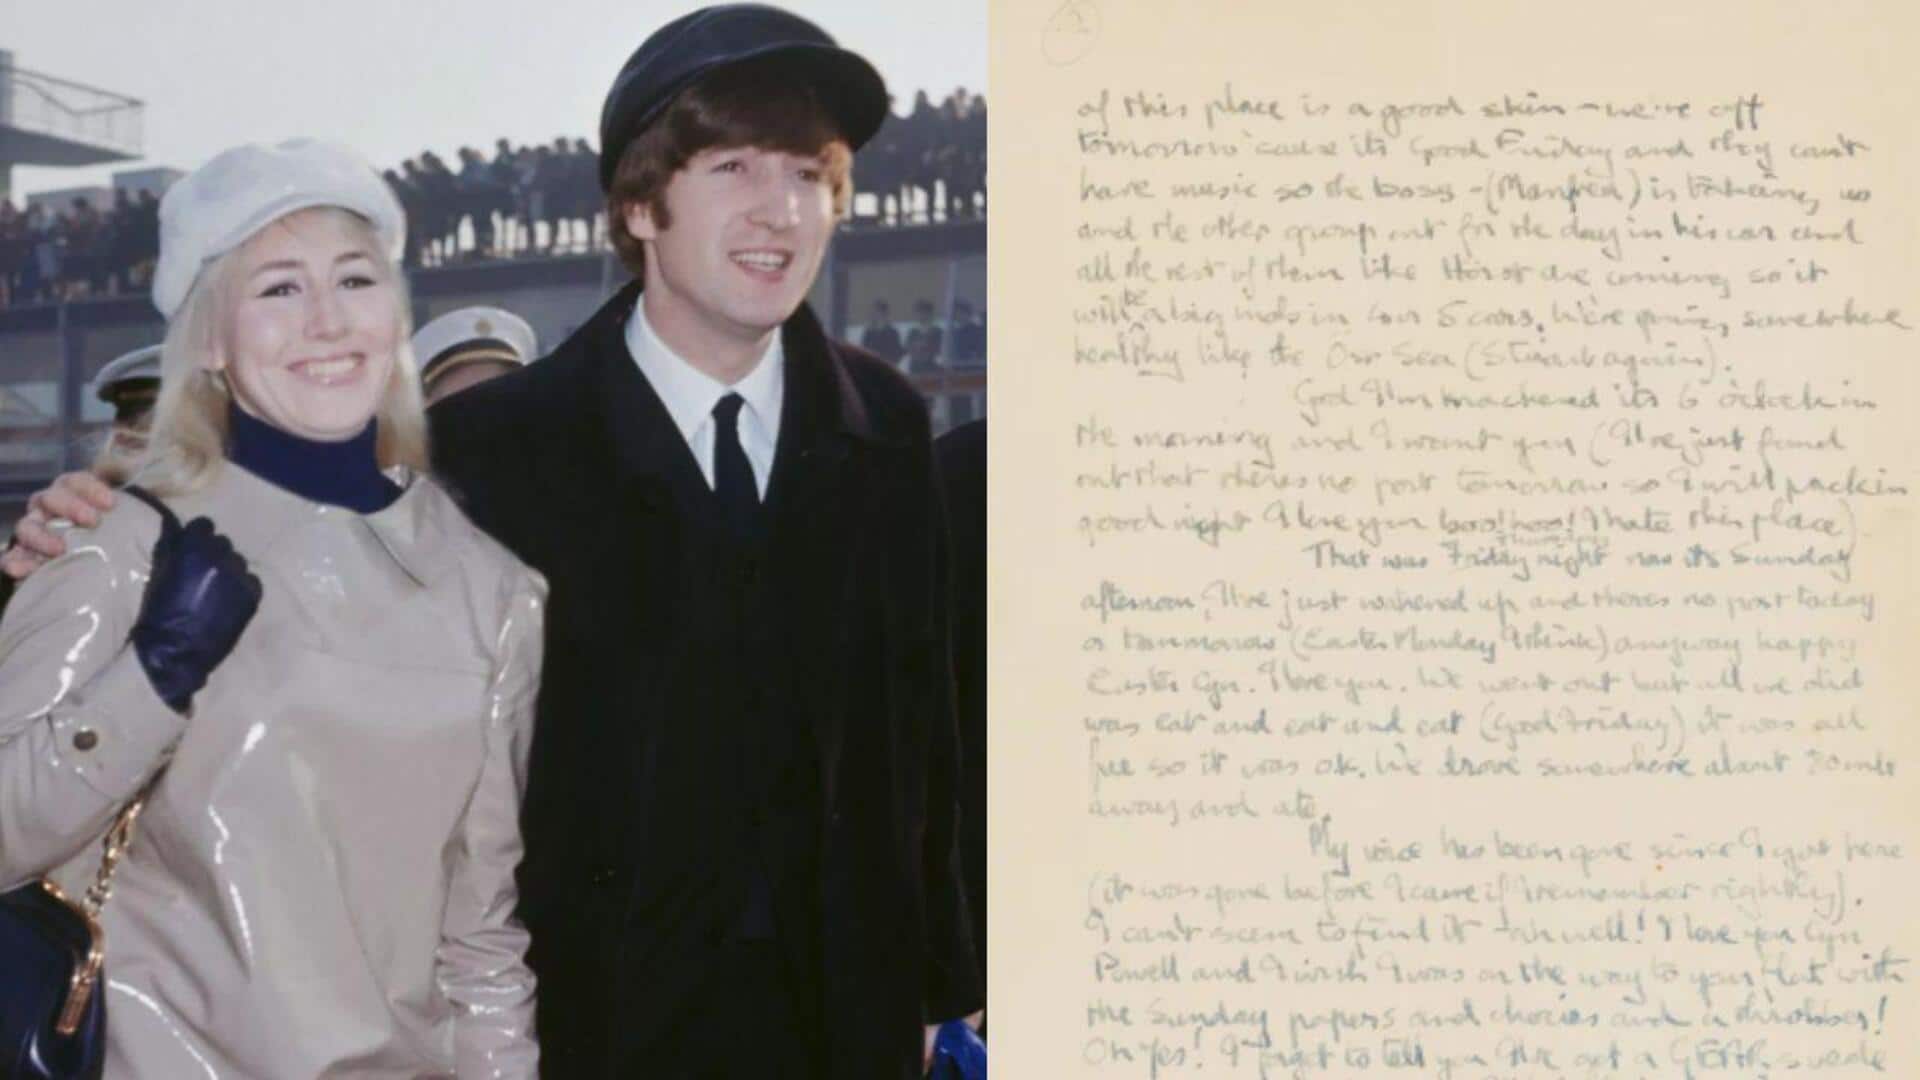 2
of this place is a good skin – we're off
tomorrow 'cause its Good Friday and they can't
have music so the boss - (Manfred) is taking us
and the other group out for the day in his car and
all the rest of them like Horst are coming so it
will be a big in 5 cars. We're going somewhere
healthy like the Sea (Stuart again).
God I'm knackered its 6 o'clock in
the morning and I want you (I've just found
out that theres no post tomorrow so I will pack in
good night I love you boo! hoo! I hate this place)
That was Friday night now its Sunday
afternoon, I've just wakened up and theres no post today
or tommorow (Easter Monday I think) anyway happy
Easter Cyn. I love you. We went out but all we did
was eat and eat and eat (Good Friday) it was all
free so it was ok. We drove somewhere about
away and ate.
My voice has been gone since I got here
(it was gone before I came if I remember rightly).
I can't seem to find it - ah well! I love you Cyn
Powell and I wish I was on the way to your flat with
the Sunday papers and chocies and a throbber!
Oh Yes! I forgot to tell you I've got a suede